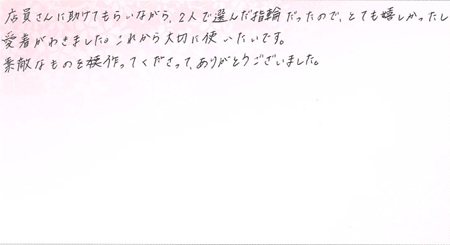 店員さんに助けてもらいながら、2人で選んだ指輪だったので、とても嬉しかったし
愛着がわきました。これから大切に使いたいです。
素敵なものを作ってくださって、ありがとうございました。